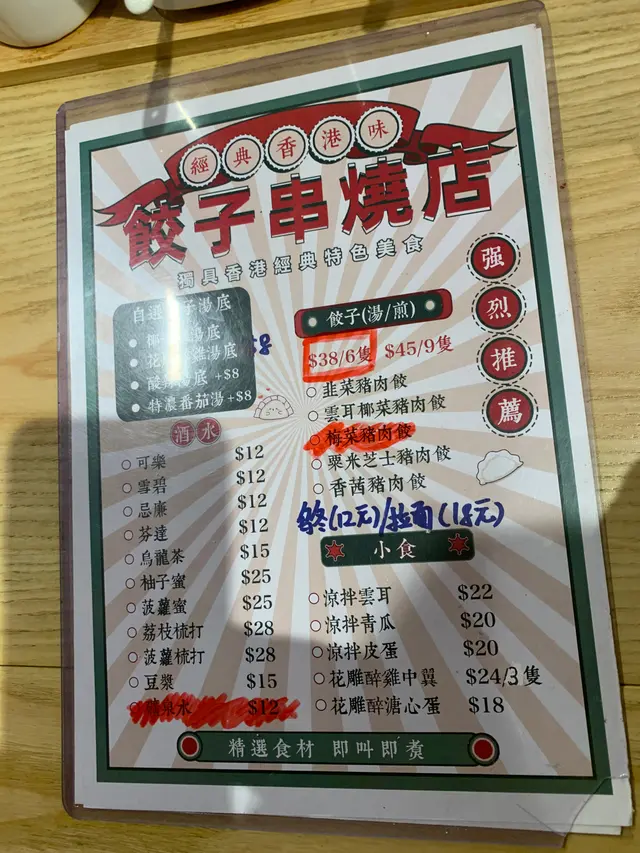 經典香港味
餃子串燒店
獨具香港經典特色美食
强烈推薦
自選 子湯底
椰 湯底
花 雞湯底 8
酸 湯底 +$8
特濃番茄湯+$8
餃子(湯/煎)
$38/6隻 $45/9隻
韭菜豬肉餃
雲耳椰菜豬肉餃
梅菜豬肉餃
粟米芝士豬肉餃
香茜豬肉餃
(12元)/拉面(18元)
酒水
可樂 $12
雪碧 $12
忌廉 $12
芬達 $12
烏龍茶 $15
柚子蜜 $25
菠蘿蜜 $25
荔枝梳打 $28
菠蘿梳打 $28
豆漿 $15
泉水 $12
小食
涼拌雲耳 $22
涼拌青瓜 $20
涼拌皮蛋 $20
花雕醉雞中翼 $24/3隻
花雕醉溏心蛋 $18
精選食材 即叫即煮